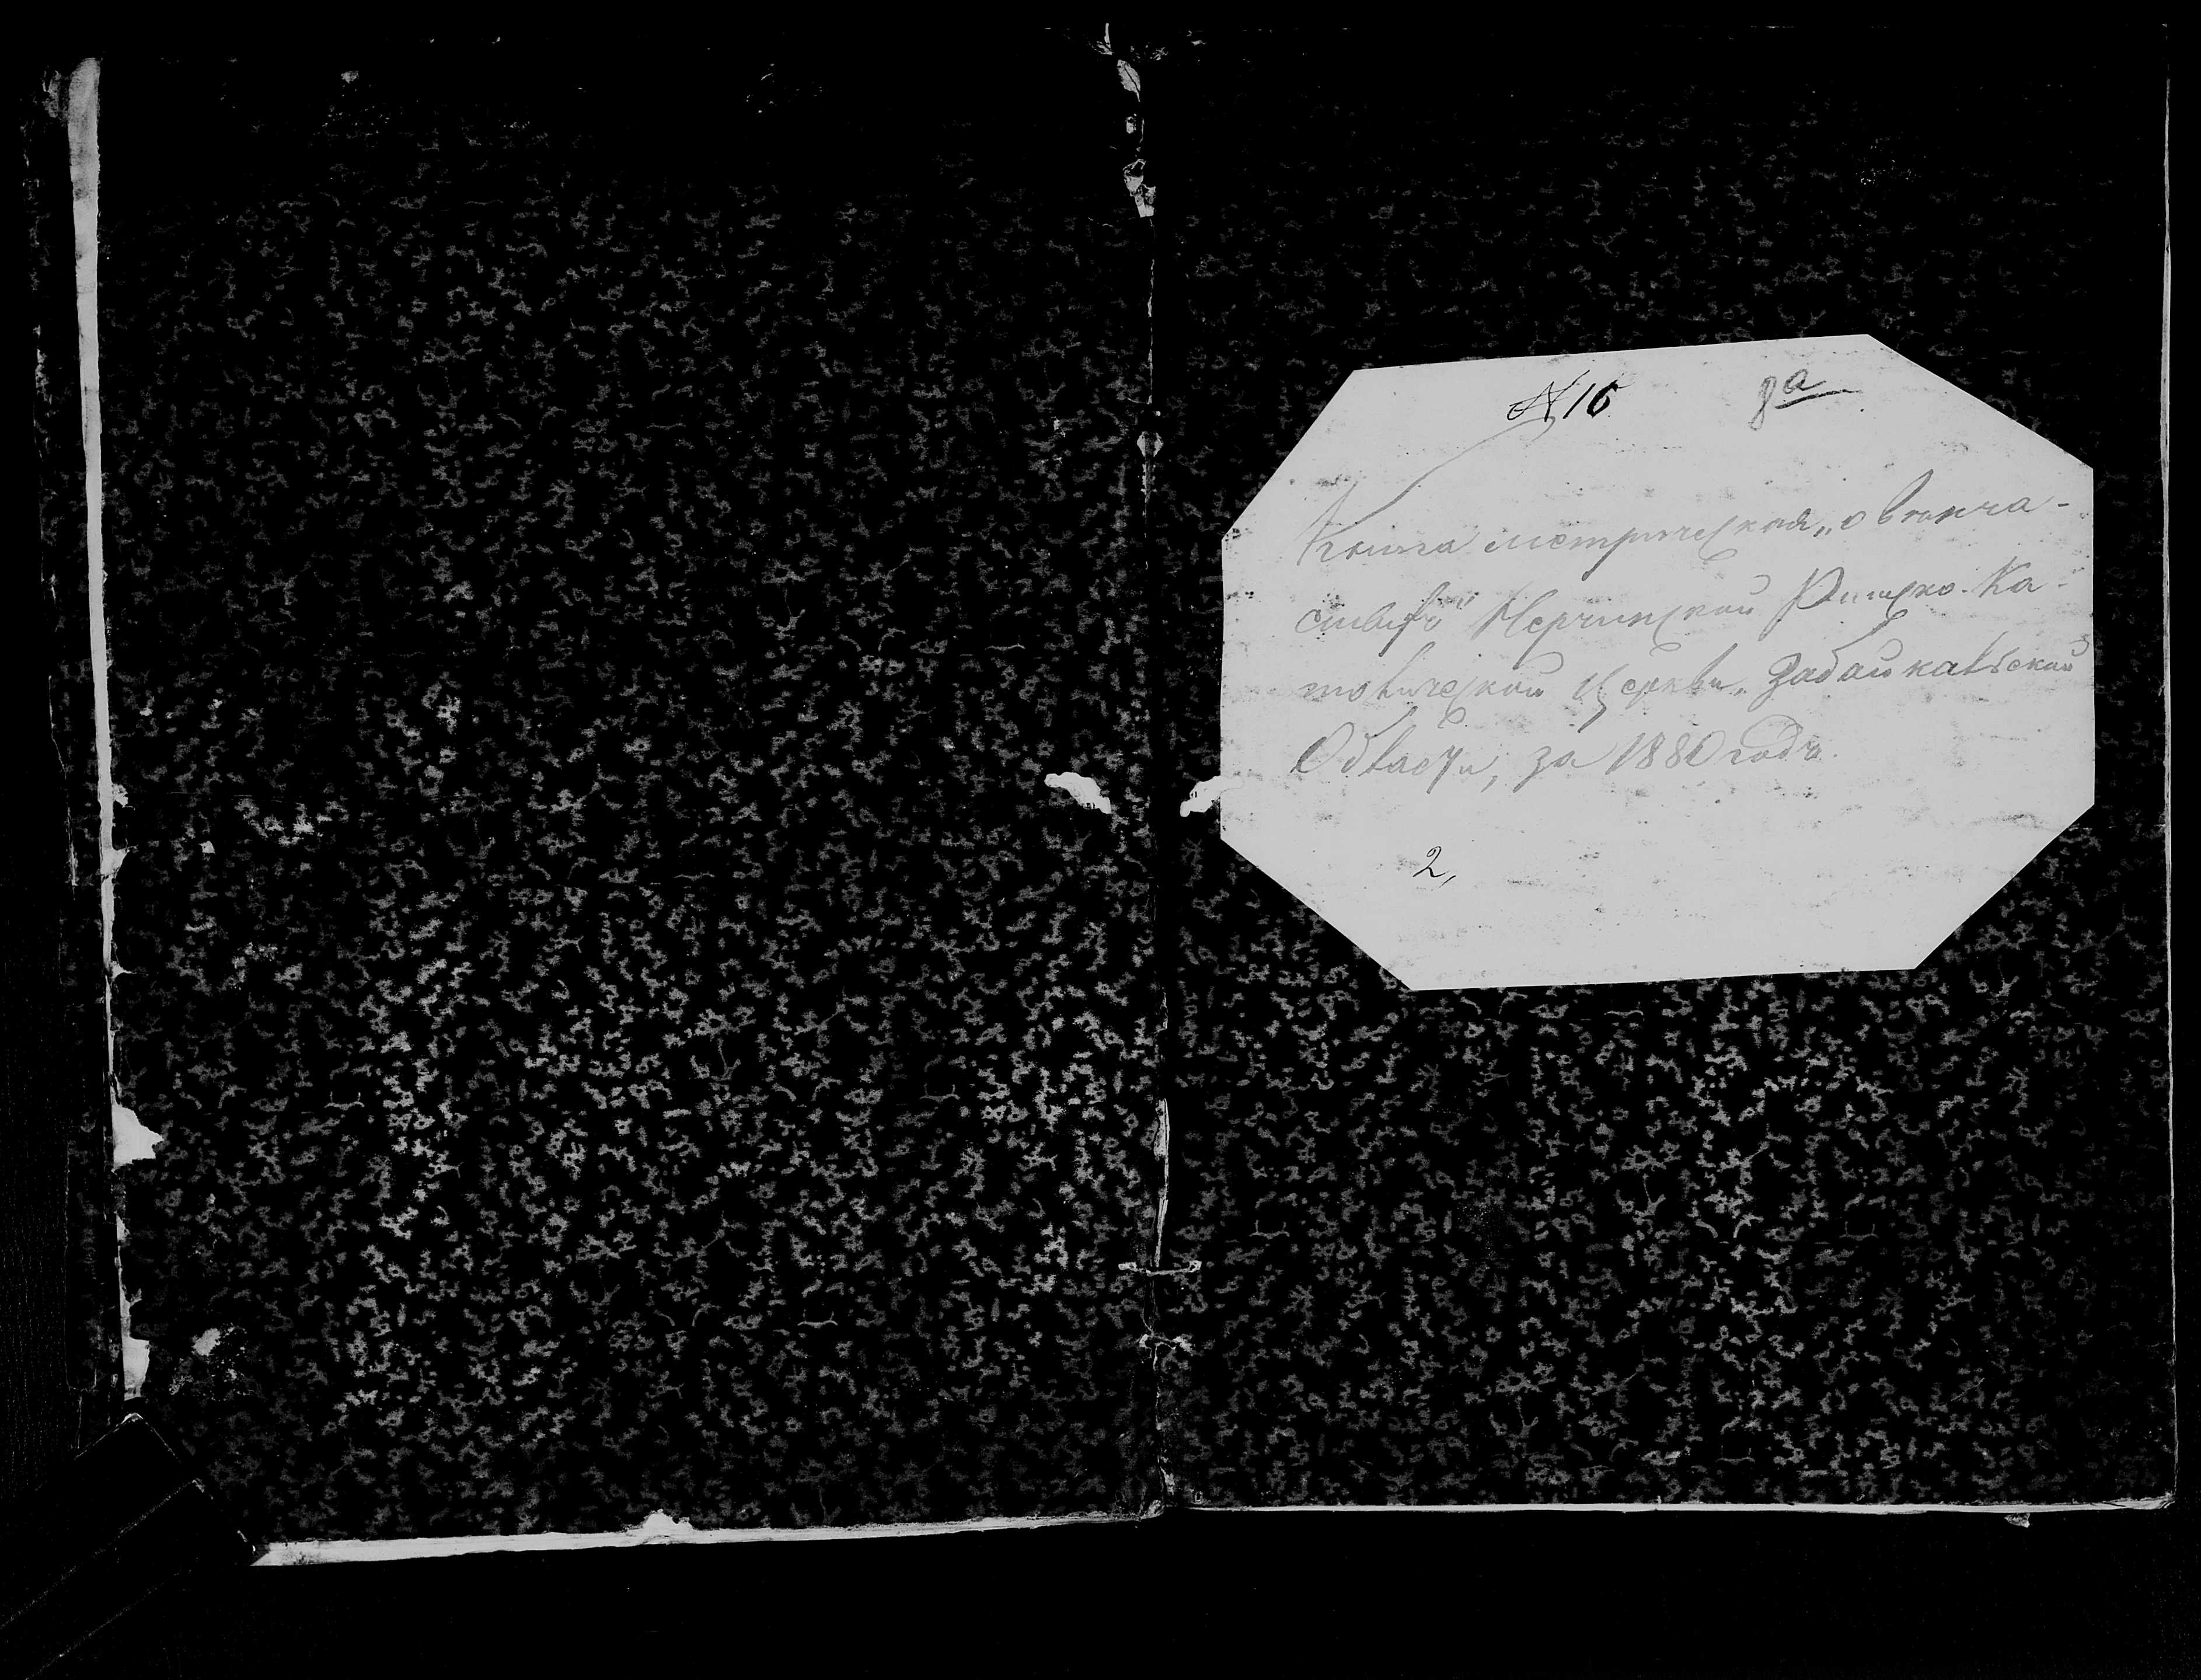 № 16 8а
Книга метрическая „о бракосо-
Нерчинской Римско-Ка-
толической Церкви, Забайкальской
Области, за 1880 годъ.
2,